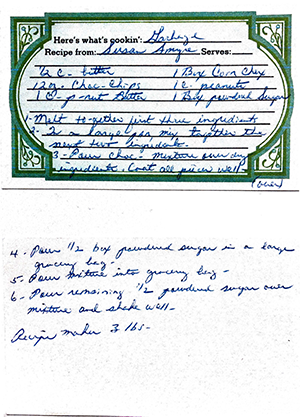 Here's what's cookin': Garbage
Recipe from: Susan Smyre Serves:
1/2 c. butter 1 Box Corn Chex
12 oz. Choc-Chips 1 c. peanuts
1 c. p-nut Butter 1 Box powdered Sugar
1- Melt together first three ingredients
2- In a large pan mix together the
next two ingredients.
3- Pour choc- mixture over dry
ingredients. Coat all pieces well.
(over)
4- Pour 1/2 box powdered sugar in a large
grocery bag -
5- Pour mixture into grocery bag -
6- Pour remaining 1/2 powdered sugar over
mixture and shake well -
Recipe makes 3 lbs -